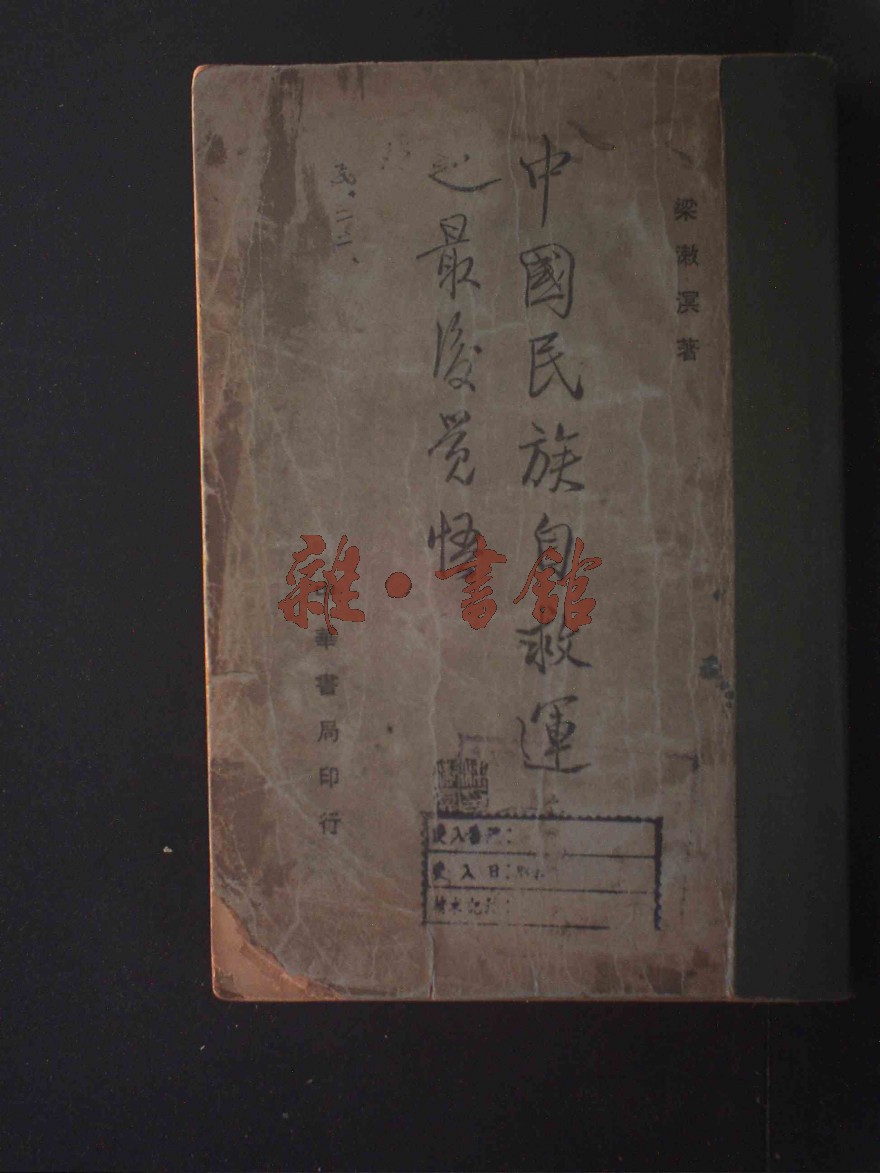 梁漱溟著
中國民族自救運
之最後覺悟
民·二二、
華書局印行
雜·書館
受入番
受入日: